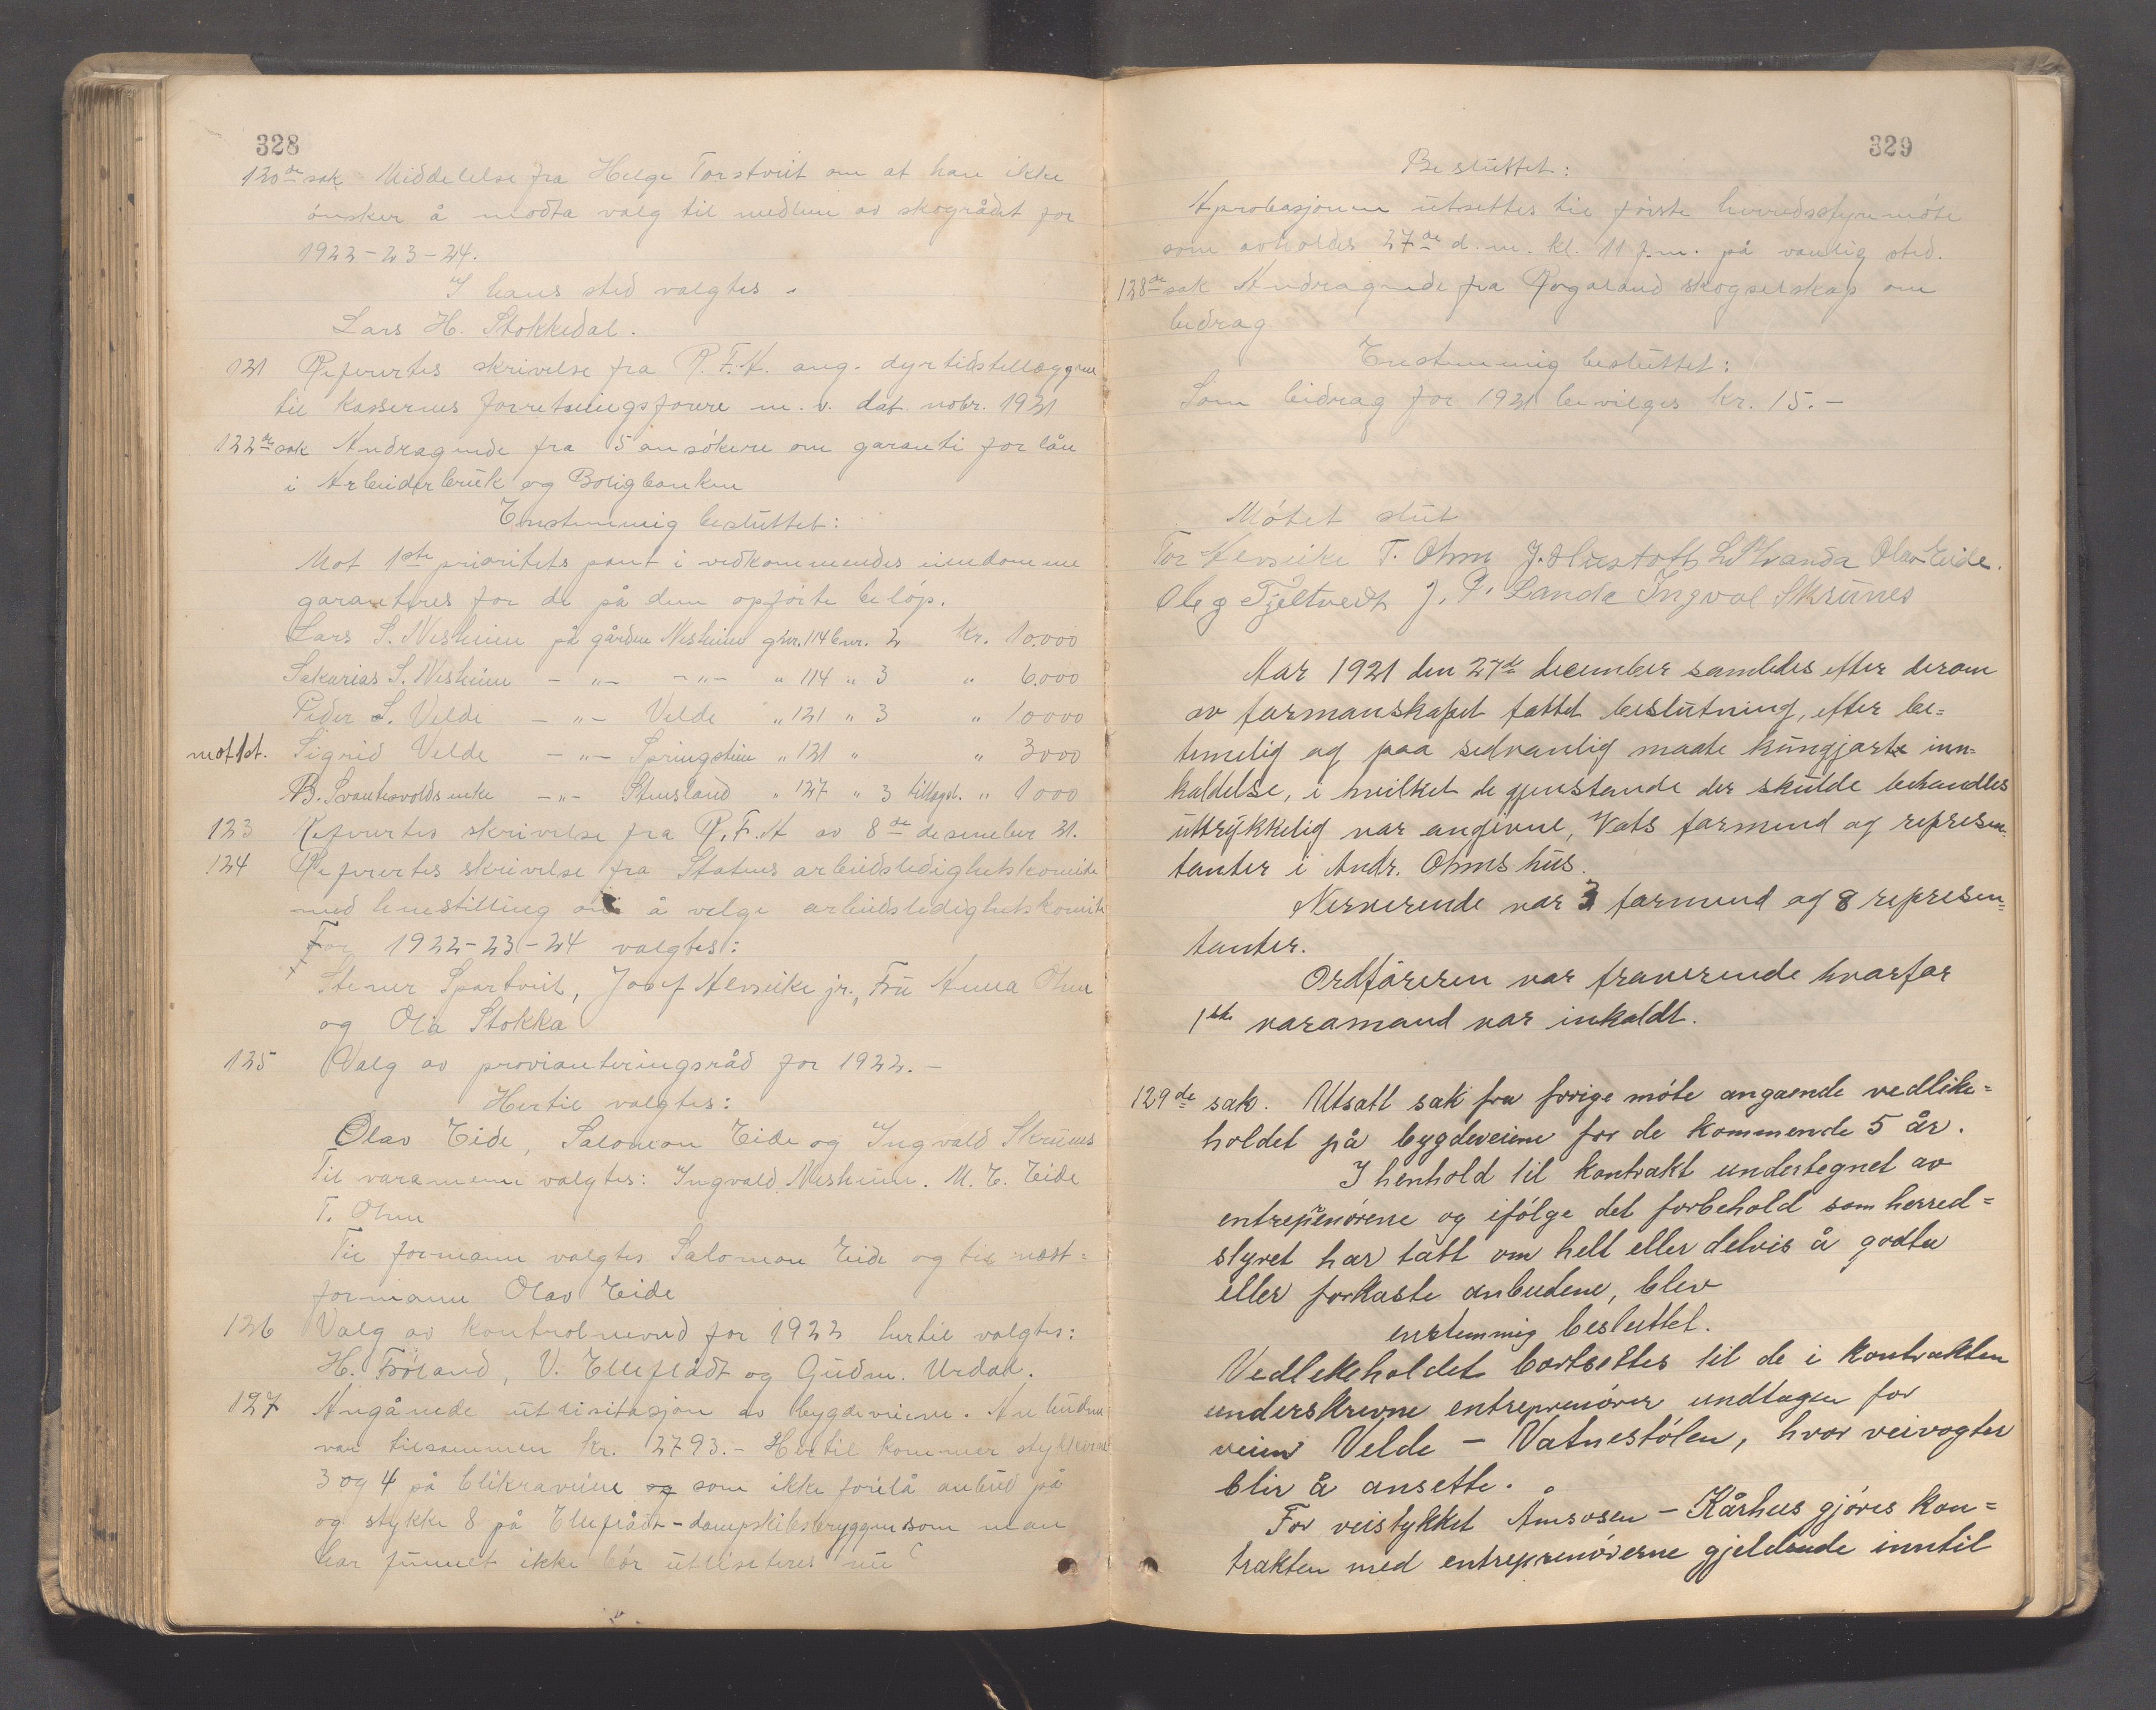 328
120de sak Middelelse fra Helge Torstveit om at han ikke
ønsker å modta valg til medlem av skogrådet for
1922-23-24.
I hans sted valgtes.
Lars H. Stokkedal.
121 Refereertes skrivelse fra R.F.A. ang. dyrtidstillæggene
til Kassernes forretningsförere m.v. dat. nobr. 1921
122de sak Andragende fra 5 ansökere om garanti for lån
i Arbeiderbruk og Boligbanken
Enstemmig besluttet:
Mot 1ste prioritets pant i vedkommendes eiendomme
garanteres for de på dem opförte belöp.
Lars S. Nesheim på gården Nesheim gnr. 114 bnr. 2 kr. 10.000
Sakarias S. Nesheim - " - - " - " 114 " 3 " 6.000
Peder S. Velde - " - Velde " 121 " 3 " 10000
Sigrid Velde - " - Springstein " 121 " " 3000
B. Svantesvolds enke - " - Stensland " 127 " 3 " 1000
123 Refereertes skrivelse fra R.F.A av 8de desember 21.
124 Refereertes skrivelse fra Statens arbeidsledighetskomite
med henstilling om å velge arbeidsledighetskomite
For 1922-23-24 valgtes:
Stener Spartveit, Josef Alvseike jr., Fru Anna Ohm
og Ola Stokka
125 Valg av provianteringsråd for 1922.-
Hertil valgtes:
Olav Eide, Salomon Eide og Ingvald Skrunes
Til varamenn valgtes: Ingvald Nesheim. M. E. Eide
T. Ohm
Til formann valgtes Salomon Eide og til næst=
formann Olav Eide
126 Valg av kontrolnevnd for 1922 hertil valgtes:
H. Fröland, V. Elleflådt og Gudm. Urdal.
127 Angånede utlisitasjon av bygdeveiene. Anbudene
var tilsammen kr. 2793.- Hertil kommer stykkerne
3 og 4 på blikraveiene og som ikke forelå anbud på
og stykke 8 på Elleflådt-dampskibsbryggen som man
har funnet ikke bör utliseteres nu
329
Besluttet:
Aprobasjonen utsettes til förste herredsstyremöte
som avholdes 27de d.m. kl. 11 f.m. på vanlig sted.
128de sak Andragende fra Rogaland skogselskap om
bidrag
Enstemmig besluttet:
Som bidrag for 1921 bevilges kr. 15.-
Mötet slut
Tor Alvseike T. Ohm Olav Eide.
Oleg Fjeltvedt J. P. Landa Ingval Skrunes
Aar 1921 den 27de december samledes efter derom
av formanskapet fattet beslutning, efter be=
temelig og paa sedvanlig maate kungjorte inn=
kaldelse, i hvilket de gjenstande der skulde behandles
uttrykkelig var angivne, Vats formend og represen=
tanter i Andr. Ohms hus.
Nerverende var 3 formend og 8 represen=
tanter.
Ordföreren var fraverende hvorfor
1ste varamand var inkaldt.
129de sak. Utsatt sak fra forige möte angaaende vedlike=
holdet på bygdeveiene for de kommende 5 år.
I henhold til kontrakt undertegnet av
entreprenörene og ifölge det forbehold som herred=
styret har tatt om helt eller delvis å godta
eller forkaste anbudene, blev
enstemmig besluttet.
Vedlekeholdet bortsettes til de i kontrakten
underskrevne entreprenörer undtagen for
veien Velde - Vatnestölen, hvor veivogter
blir å ansette.
For veistykket Åmsosen - Kårhus gjöres kon=
trakten med entreprenörerne gjeldende inntil